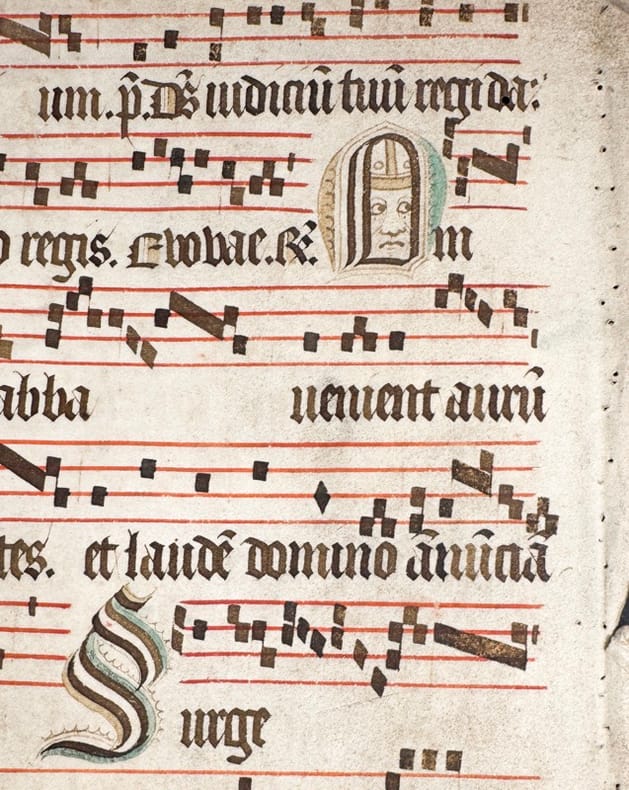 um. p̄. Ds̄ iudiciū tuū regi da:
o regis. Euouae. ℟. Om
abba uenient aurū
tes. et laudē domino ānūciā
Surge